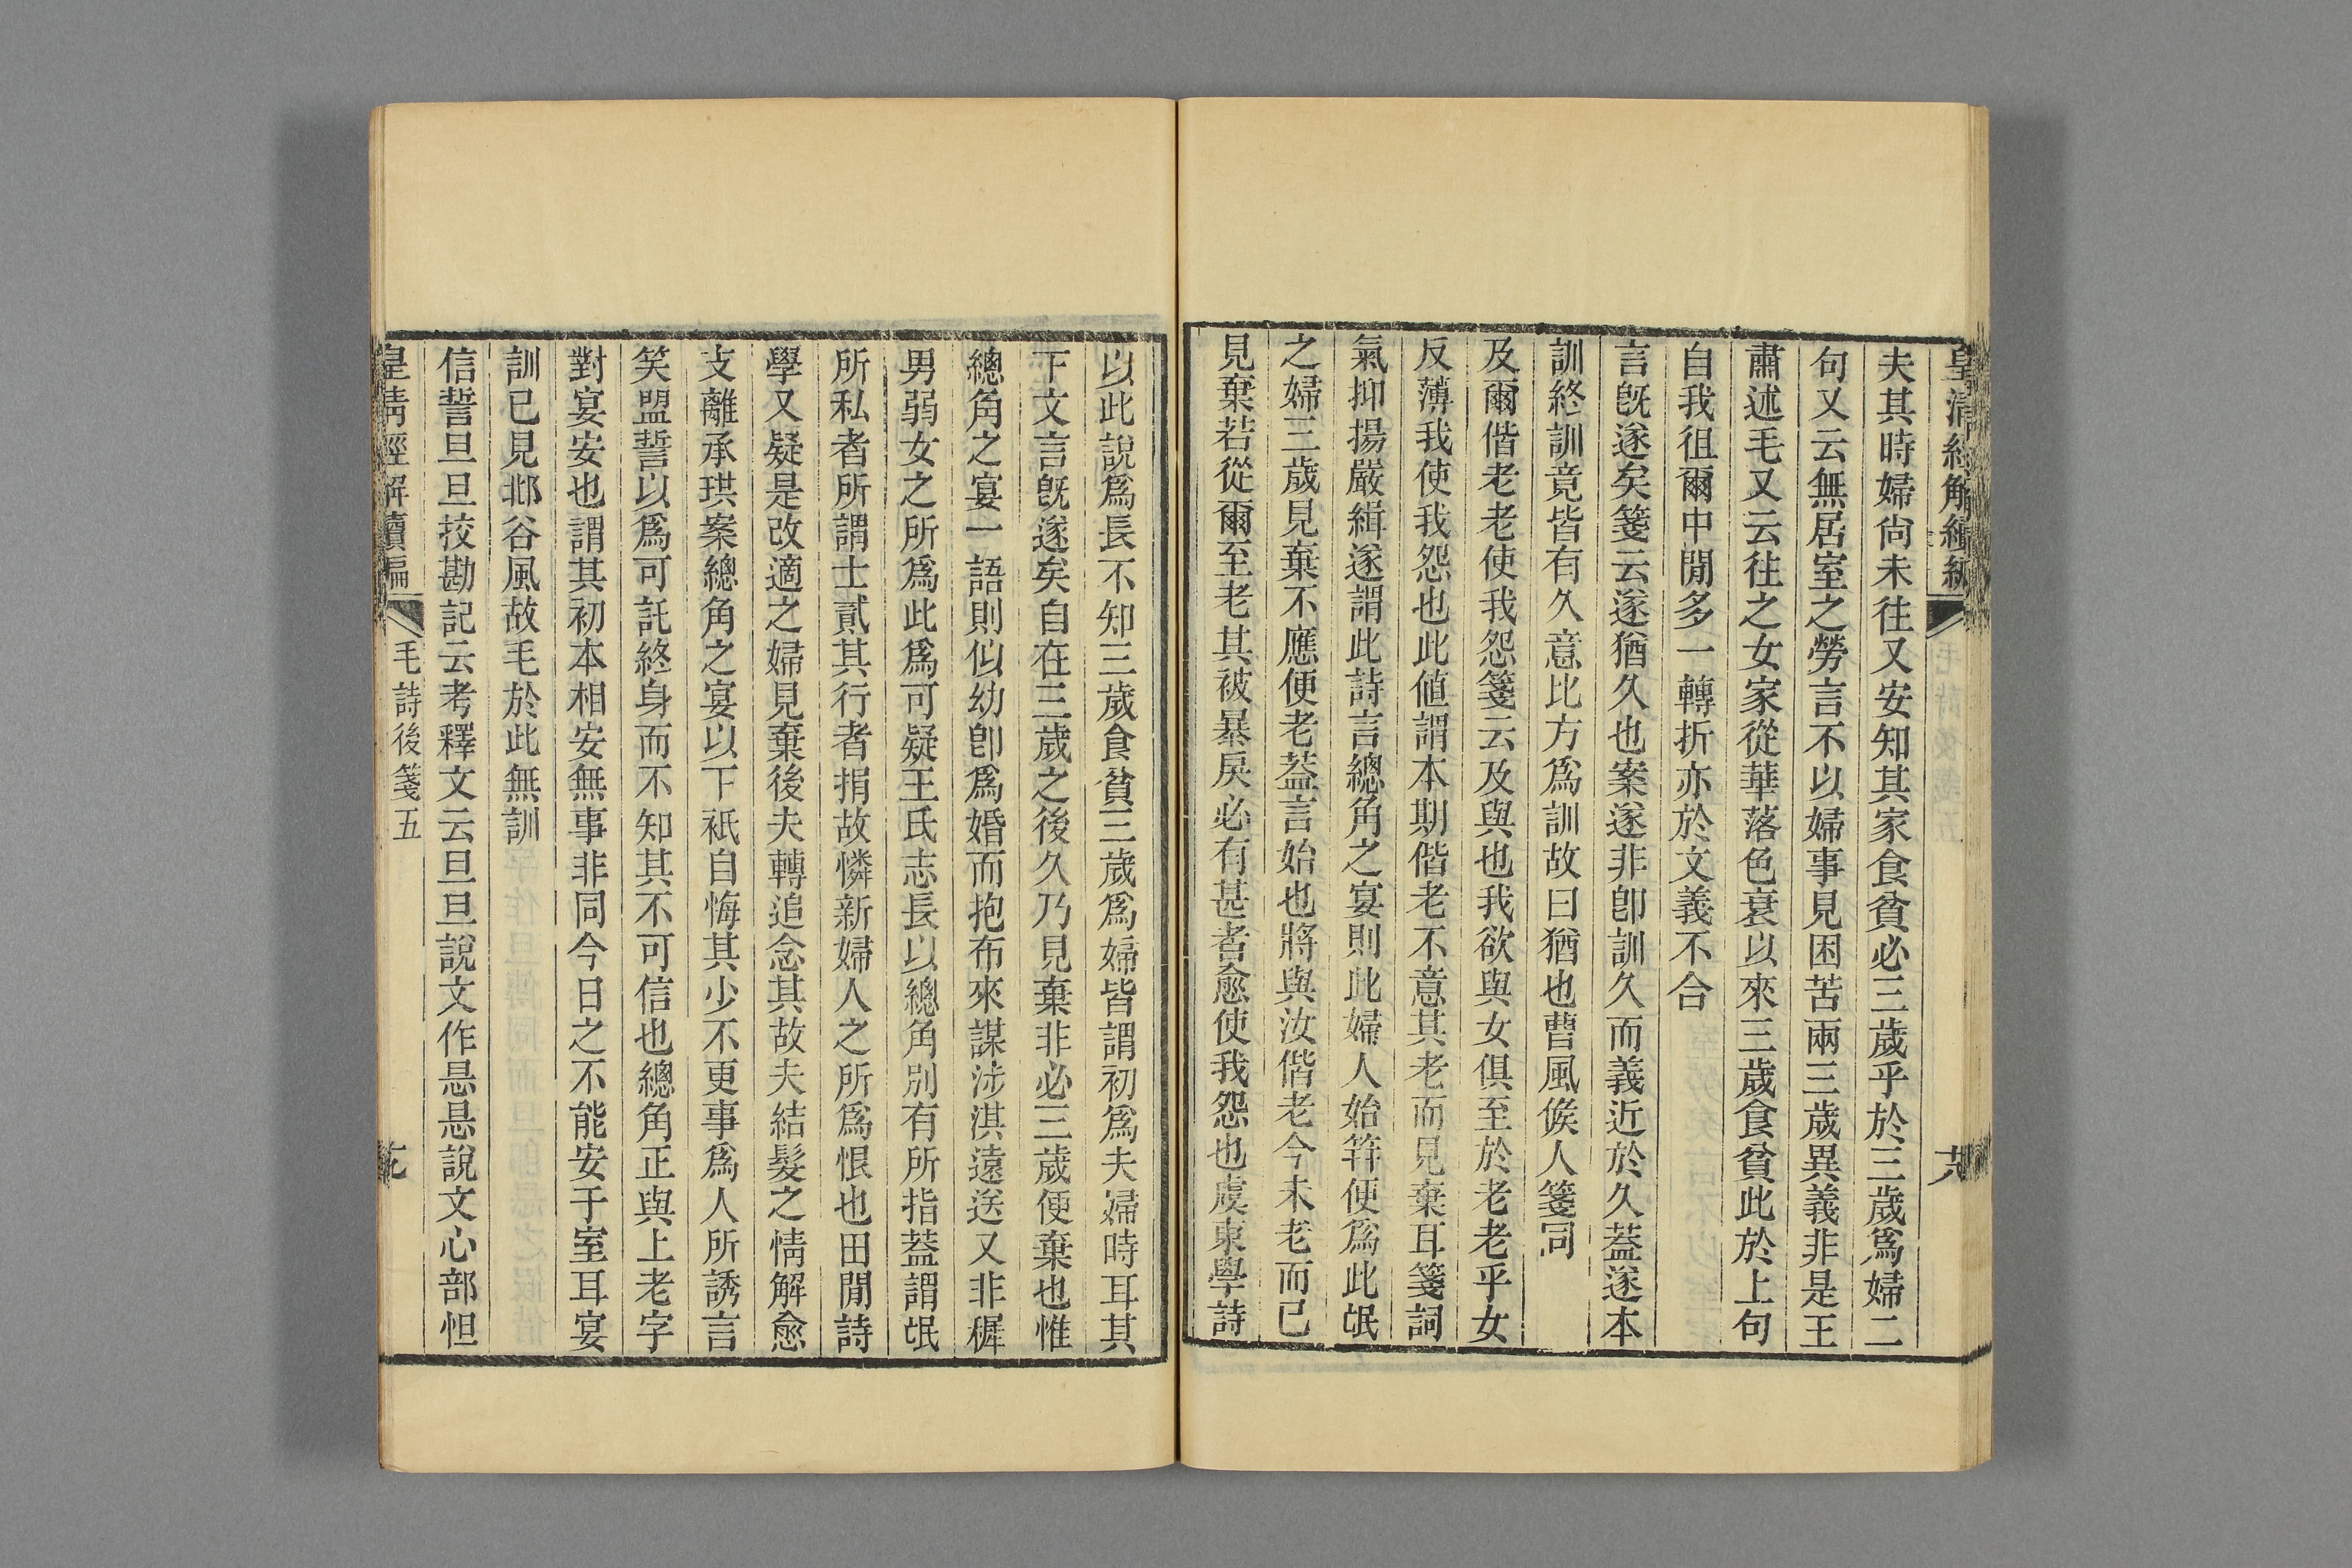 皇清經解續編
夫其時婦尙未往又安知其家食貧必三歲乎於三歲爲婦二
句又云無居室之勞言不以婦事見困苦兩三歲異義非是王
肅述毛又云往之女家從華落色衰以來三歲食貧此於上句
自我徂爾中閒多一轉折亦於文義不合
言旣遂矣箋云遂猶久也案遂非卽訓久而義近於久葢遂本
訓終訓竟皆有久意比方爲訓故曰猶也曹風候人箋同
及爾偕老老使我怨箋云及與也我欲與女俱至於老老乎女
反薄我使我怨也此値謂本期偕老不意其老而見棄耳箋詞
氣抑揚嚴緝遂謂此詩言總角之宴則此婦人始笄便爲此氓
之婦三歲見棄不應便老葢言始也將與汝偕老今未老而已
見棄若從爾至老其被暴戾必有甚者愈使我怨也虞東學詩
以此說爲長不知三歲食貧三歲爲婦皆謂初爲夫婦時耳其
下文言旣遂矣自在三歲之後久乃見棄非必三歲便棄也惟
總角之宴一語則似幼卽爲婚而抱布來謀涉淇遠送又非穉
男弱女之所爲此爲可疑王氏志長以總角別有所指葢謂氓
所私者所謂士貳其行者捐故憐新婦人之所爲恨也田閒詩
學又疑是改適之婦見棄後夫轉追念其故夫結髮之情解愈
支離承珙案總角之宴以下祇自悔其少不更事爲人所誘言
笑盟誓以爲可託終身而不知其不可信也總角正與上老字
對宴安也謂其初本相安無事非同今日之不能安于室耳宴
訓已見邶谷風故毛於此無訓
信誓旦旦挍勘記云考釋文云旦旦說文作悬悬說文心部怛
皇淸經解續編 毛詩後箋五